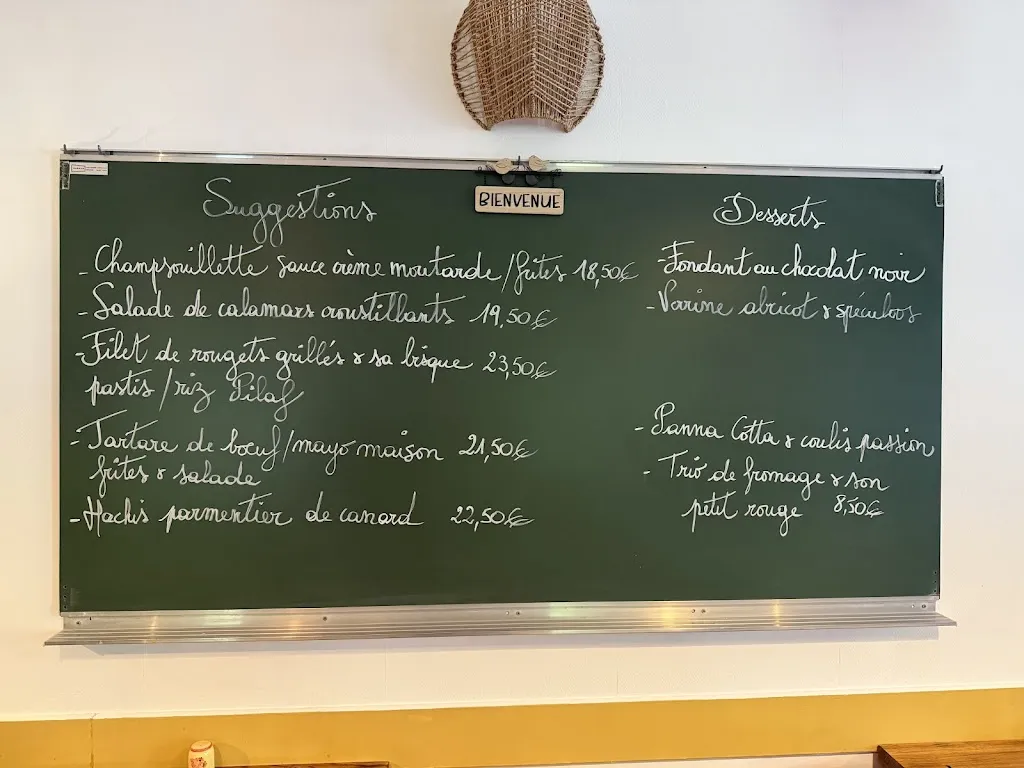 BIENVENUE
Suggestions
- Champsouillette sauce crème moutarde/frites 18,50€
- Salade de calamars croustillants 19,50€
- Filet de rougets grillés & sa bisque 23,50€
pastis/riz Pilaf
- Tartare de boeuf/mayo maison 21,50€
frites & salade
- Hachis parmentier de canard 22,50€
Desserts
- Fondant au chocolat noir
- Verrine abricot & spéculoos
- Panna Cotta & coulis passion
- Trio de fromage & son
petit rouge 8,50€